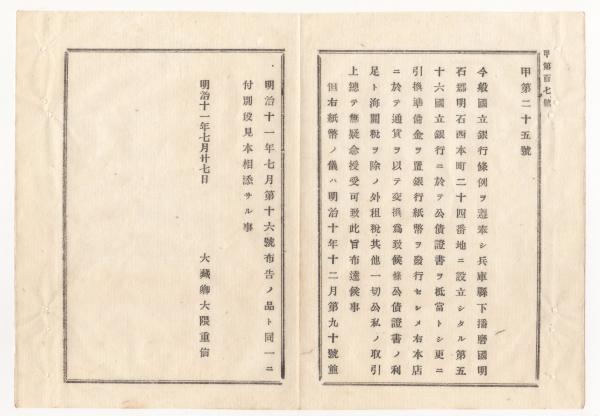 甲第百七號
甲第二十五號
今般國立銀行條例ヲ遵奉シ兵庫縣下播磨國明
石郡明石西本町二十四番地ニ設立シタル第五
十六國立銀行ニ於テ公債證書ヲ抵當トシ更ニ
引換準備金ヲ置銀行紙幣ヲ發行セシメ右本店
ニ於テ通貨ヲ以テ交換為致候條公債證書ノ利
足ト海關稅ヲ除ノ外租稅其他一切公私ノ取引
上總テ無疑念授受可致此旨布達候事
但右紙幣ノ儀ハ明治十年十二月第九十號並
明治十一年七月第十六號布告ノ品ト同一ニ
付別段見本相添サル事
明治十一年七月廿七日
大藏卿大隈重信